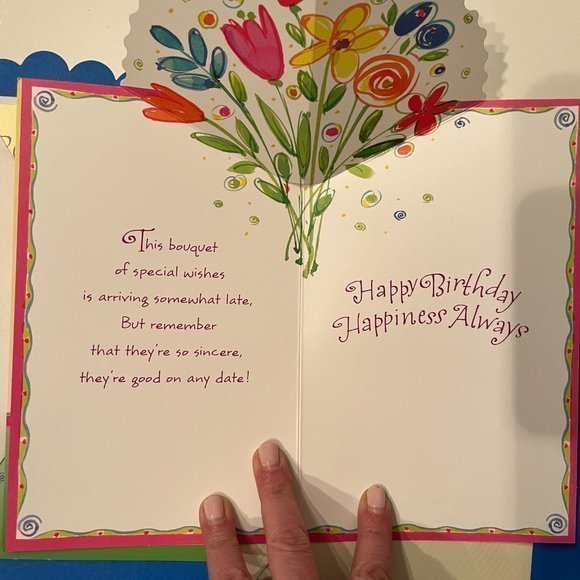 This bouquet
of special wishes
is arriving somewhat late,
But remember
that they're so sincere,
they're good on any date!
Happy Birthday
Happiness Always